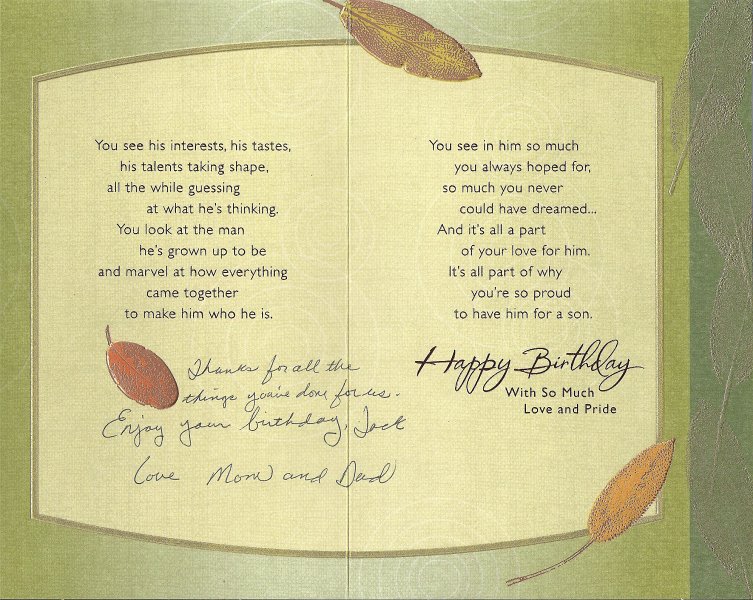 You see his interests, his tastes,
his talents taking shape,
all the while guessing
at what he's thinking.
You look at the man
he's grown up to be
and marvel at how everything
came together
to make him who he is.
Thanks for all the
things you've done for us.
Enjoy your birthday, Jack
Love Mom and Dad
You see in him so much
you always hoped for,
so much you never
could have dreamed...
And it's all a part
of your love for him.
It's all part of why
you're so proud
to have him for a son.
Happy Birthday
With So Much
Love and Pride